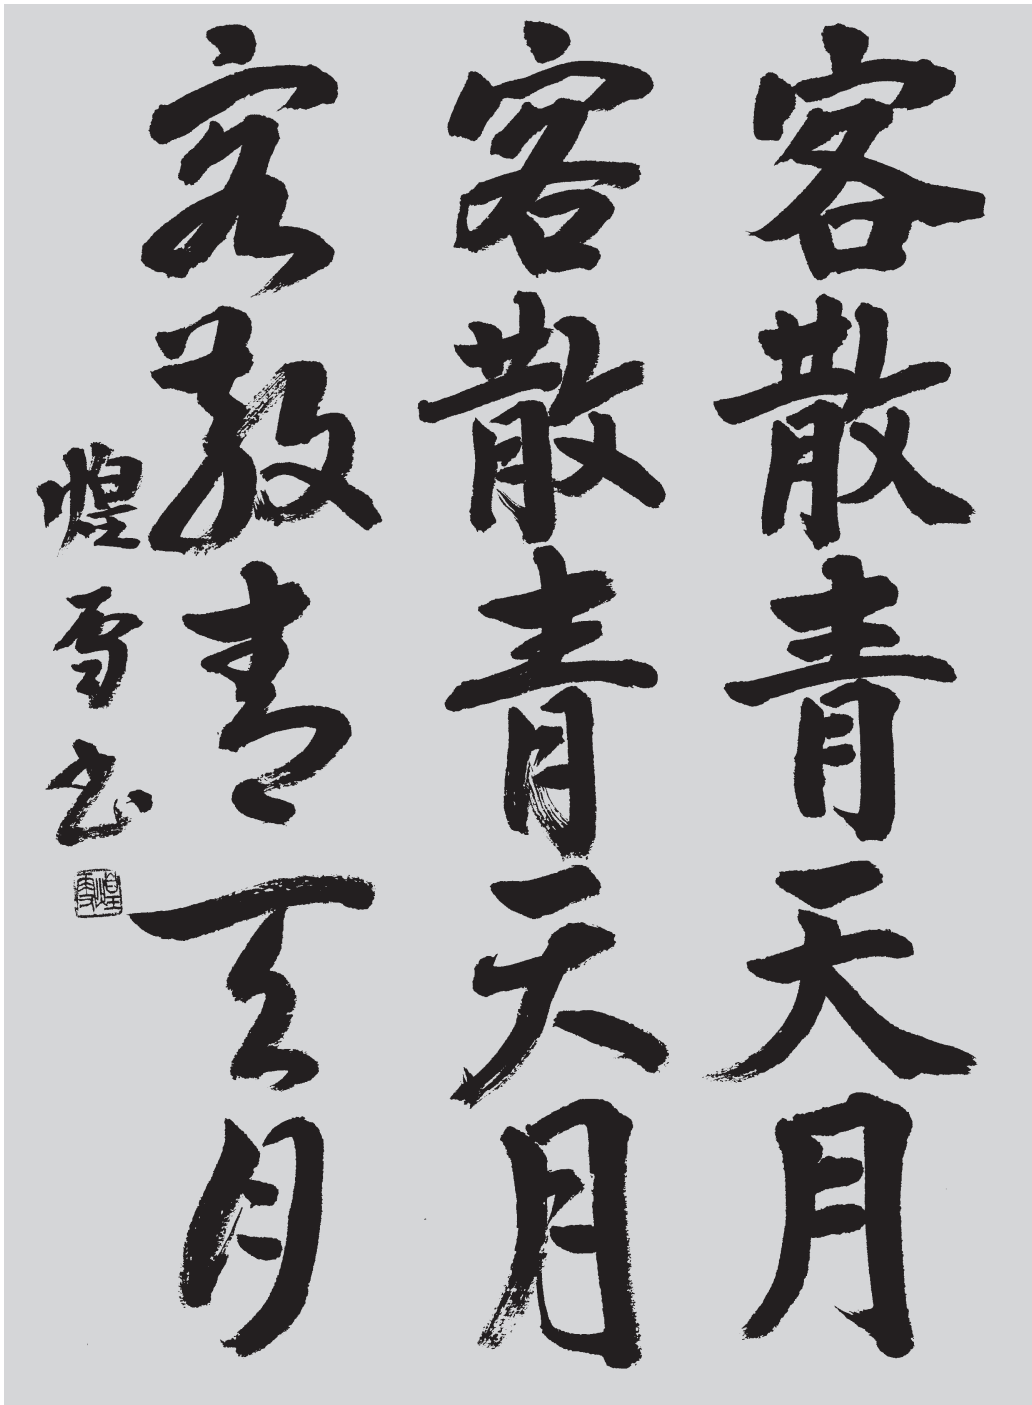 客散青天月
客散青天月
客散青天月
煌雪書
煌雪